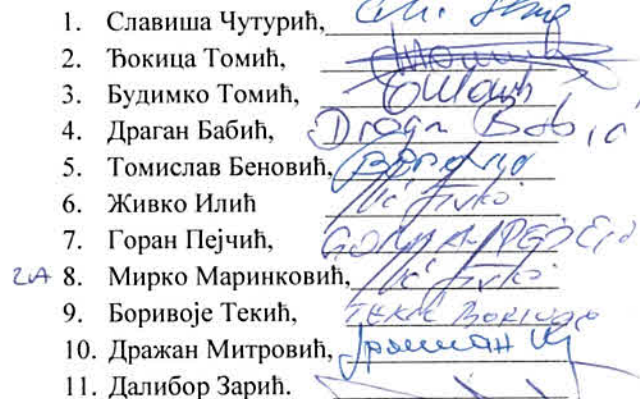 1. Славиша Чутурић,
2. Ђокица Томић,
3. Будимко Томић,
4. Драган Бабић, Dragan Babić
5. Томислав Беновић,
6. Живко Илић Ilić Živko
7. Горан Пејчић, GORAN PEJČIĆ
ZA 8. Мирко Маринковић, Ilić Živko
9. Боривоје Текић, TEKIĆ BORIVOJE
10. Дражан Митровић,
11. Далибор Зарић.